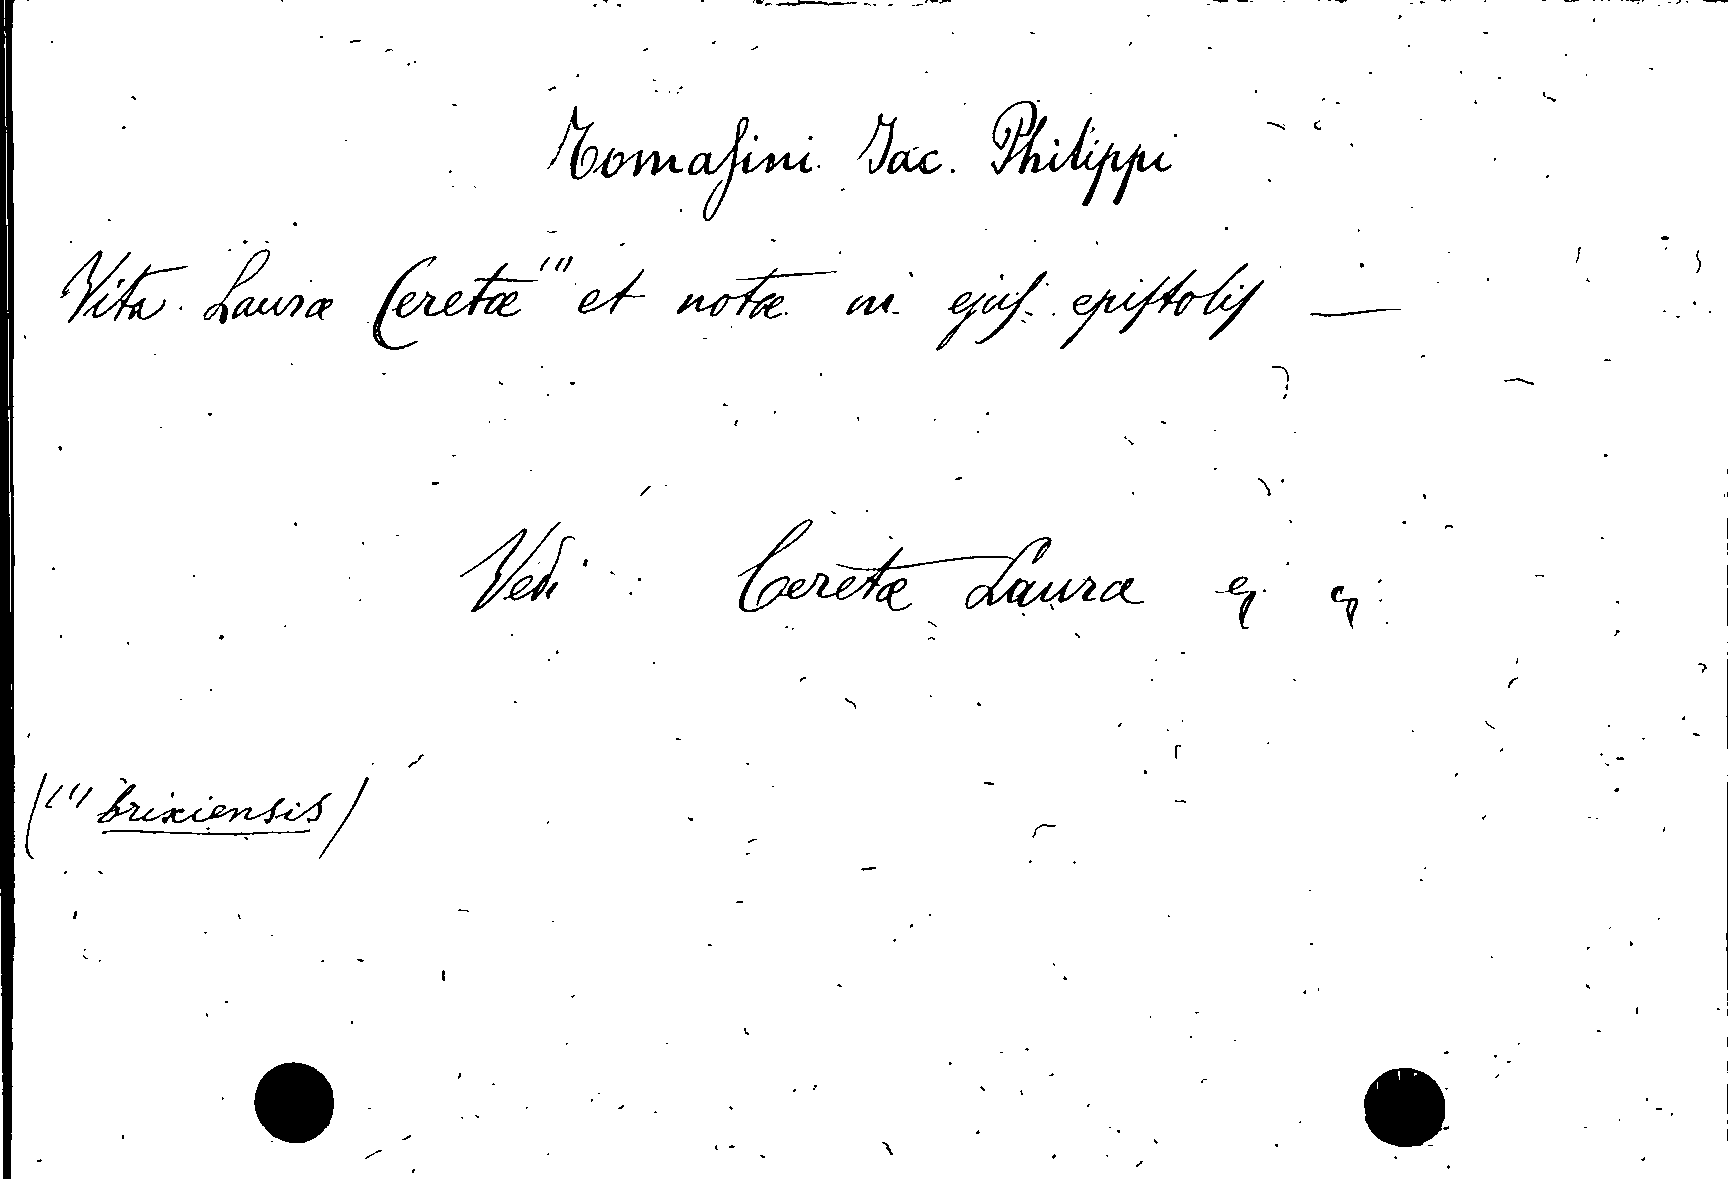 Tomaſini Jac. Philippi
Vita Lauræ Ceretæ (1) et notæ in ejuſ epiſtoliſ —
Vedi : Ceretæ Lauræ
((1) brixiensis)